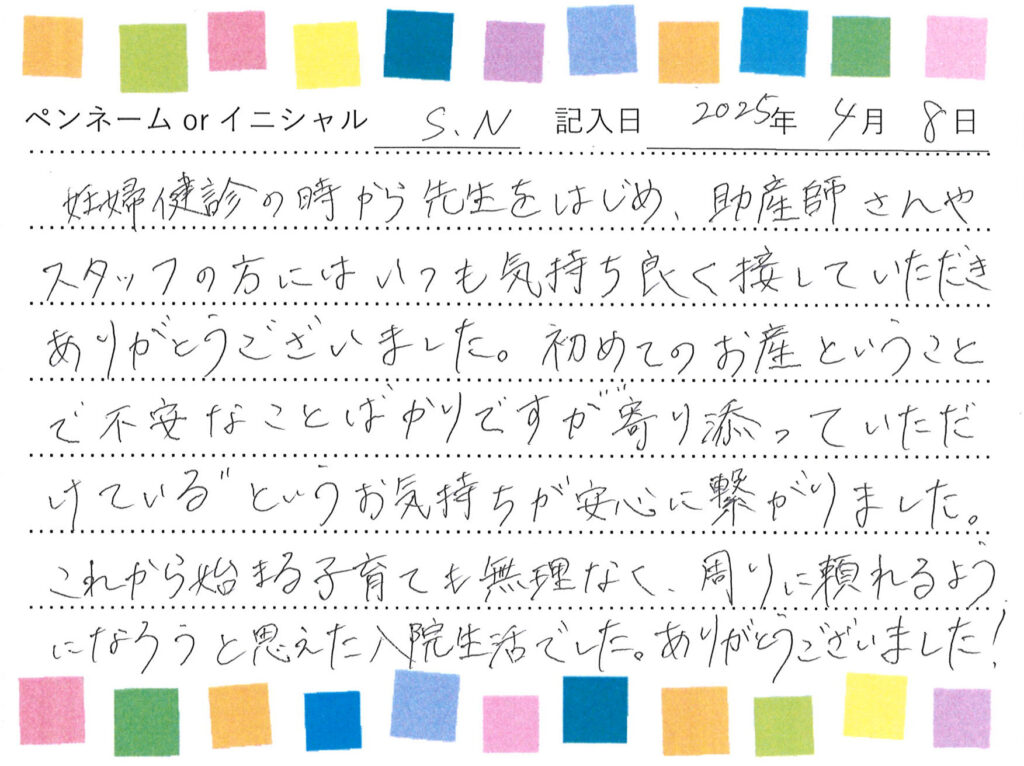 ペンネーム or イニシャル S.N 記入日 2025年 4月 8日
妊婦健診の時から先生をはじめ、助産師さんや
スタッフの方にはいつも気持ち良く接していただき
ありがとうございました。初めてのお産ということ
で不安なことばかりですが"寄り添っていただ
けている"というお気持ちが安心に繋がりました。
これから始まる子育ても無理なく、周りに頼れるよう
になろうと思えた入院生活でした。ありがとうございました!